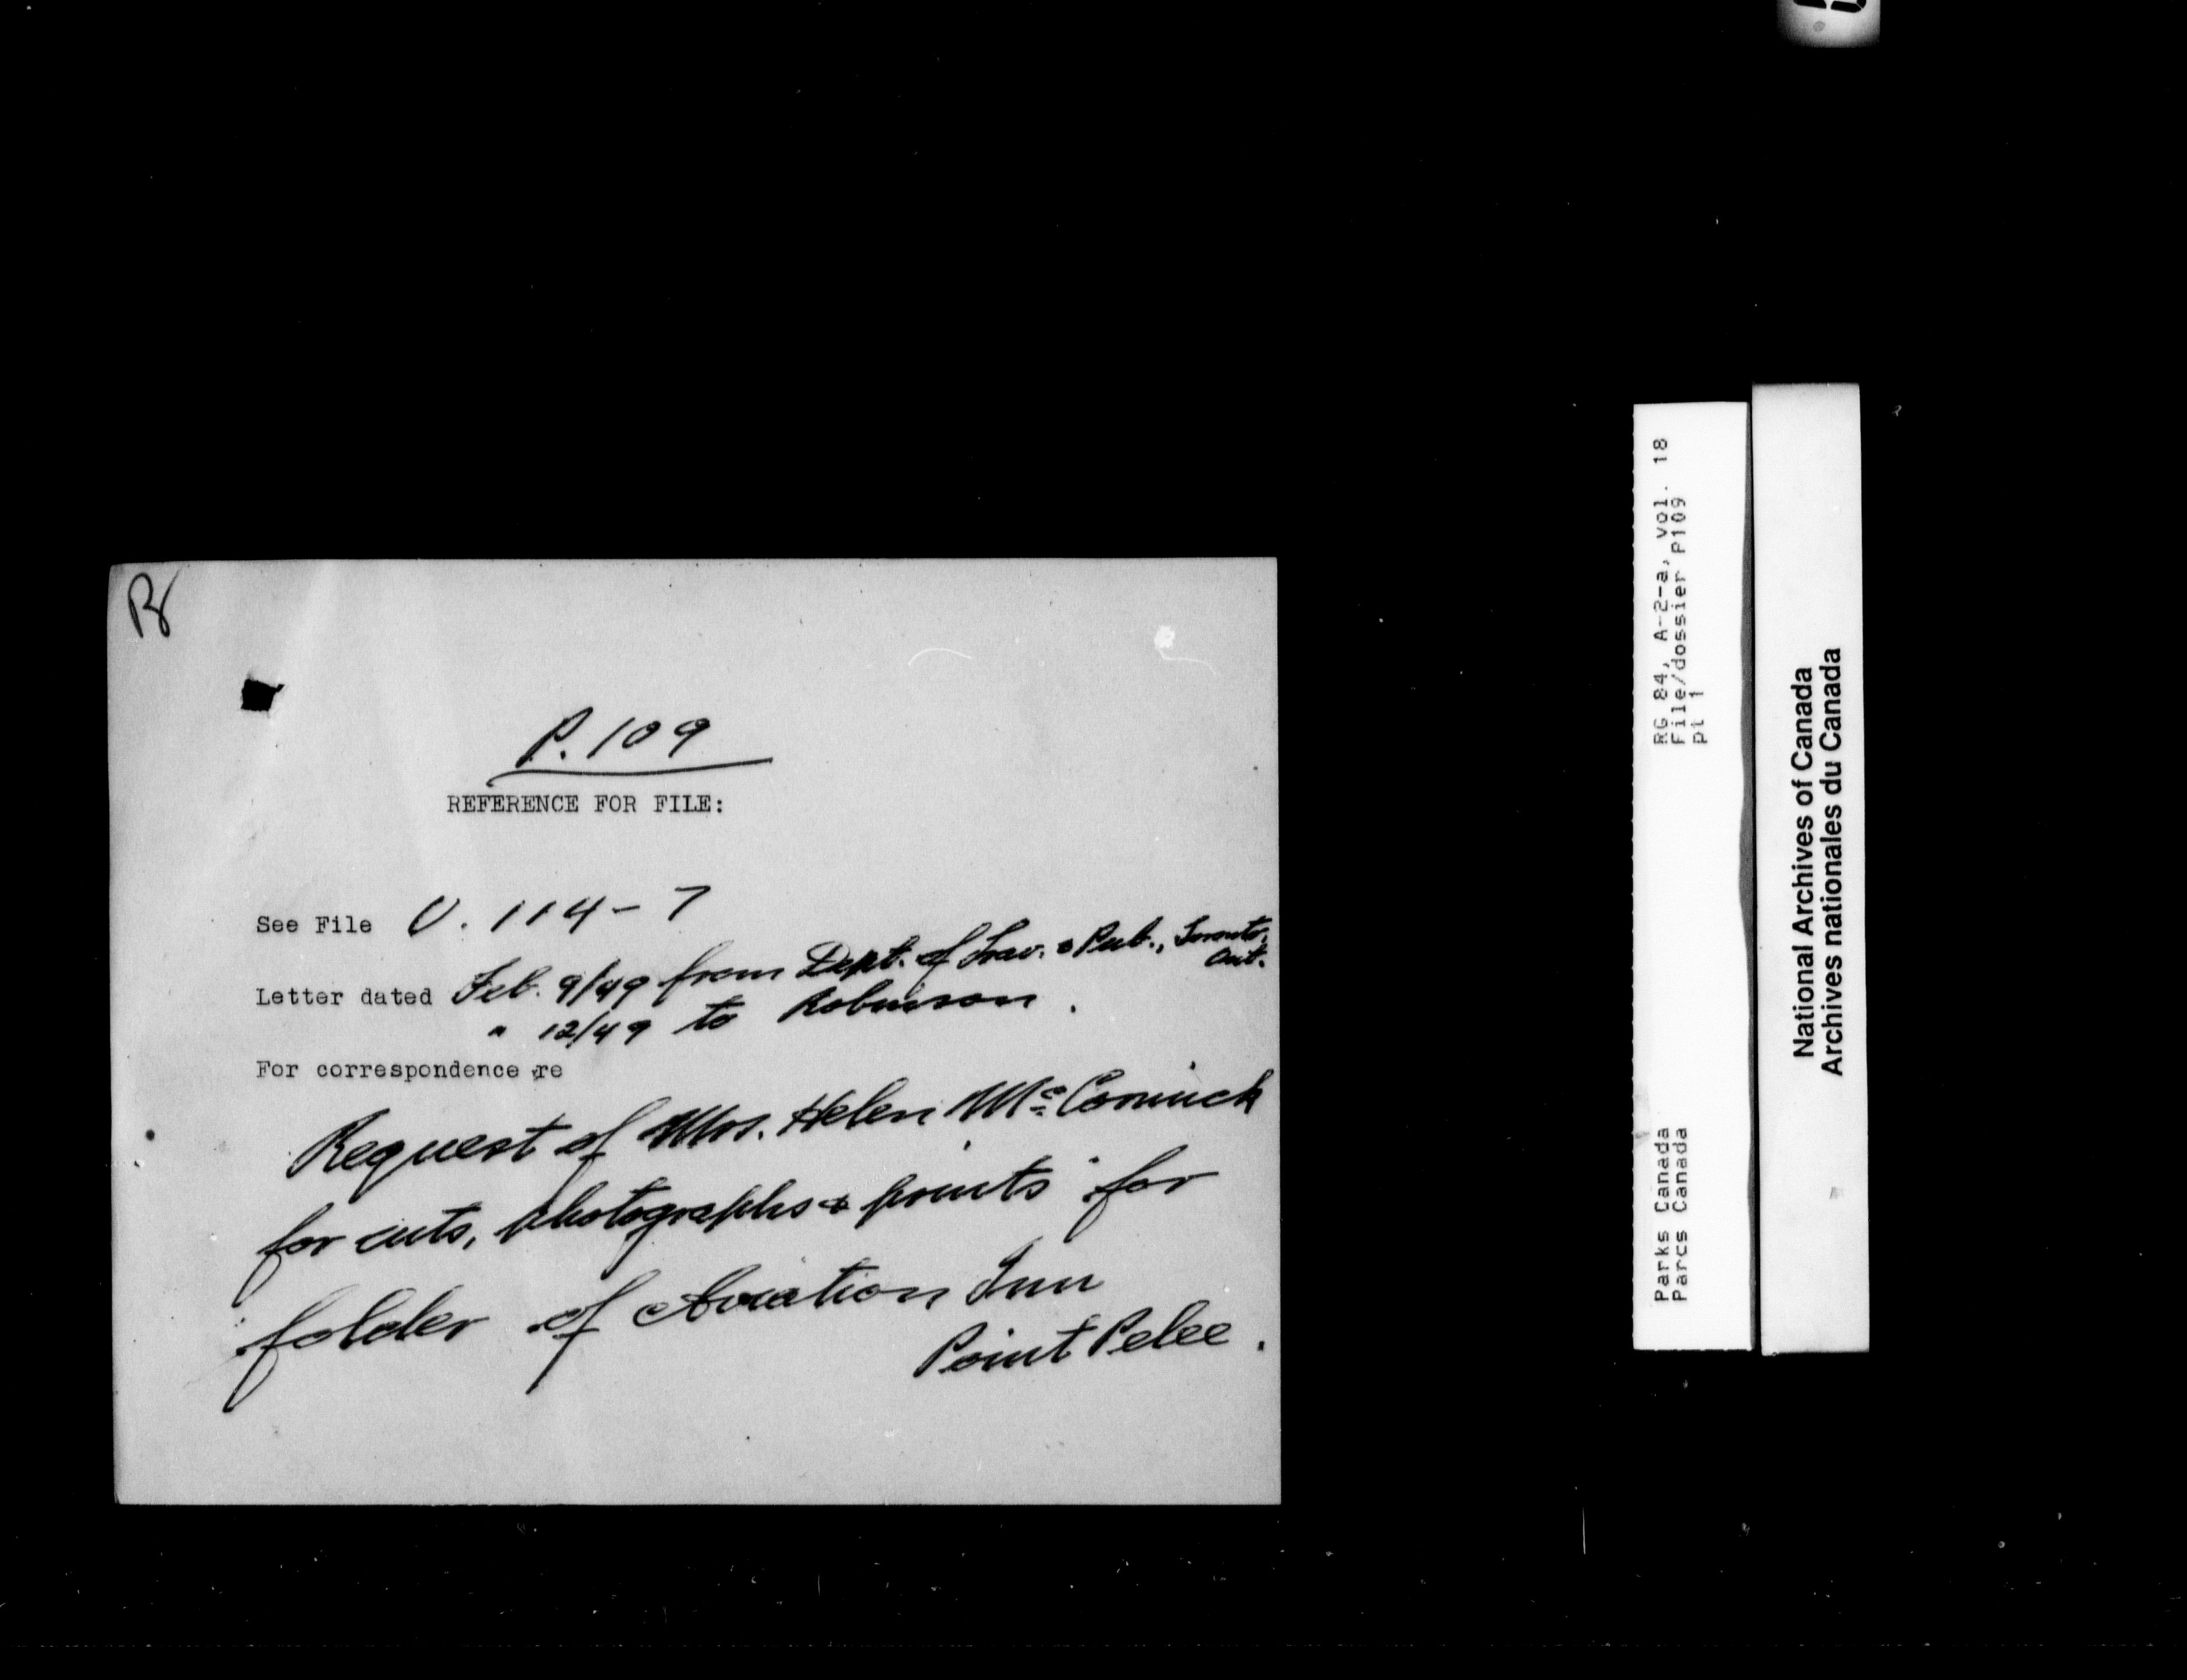 P. 109
REFERENCE FOR FILE:
See File U. 114-7
Letter dated Feb. 9/49 from Dept. of Trav. & Pub., Toronto, Ont.
" 12/49 to Robinson.
For correspondence re
Request of Mrs. Helen McCormick
for cuts, photographs & prints for
folder of Aviation Inn
Point Pelee.
RG 84, A-2-a, vol. 18
File/dossier P109
pt 1
Parks Canada
Parcs Canada
National Archives of Canada
Archives nationales du Canada